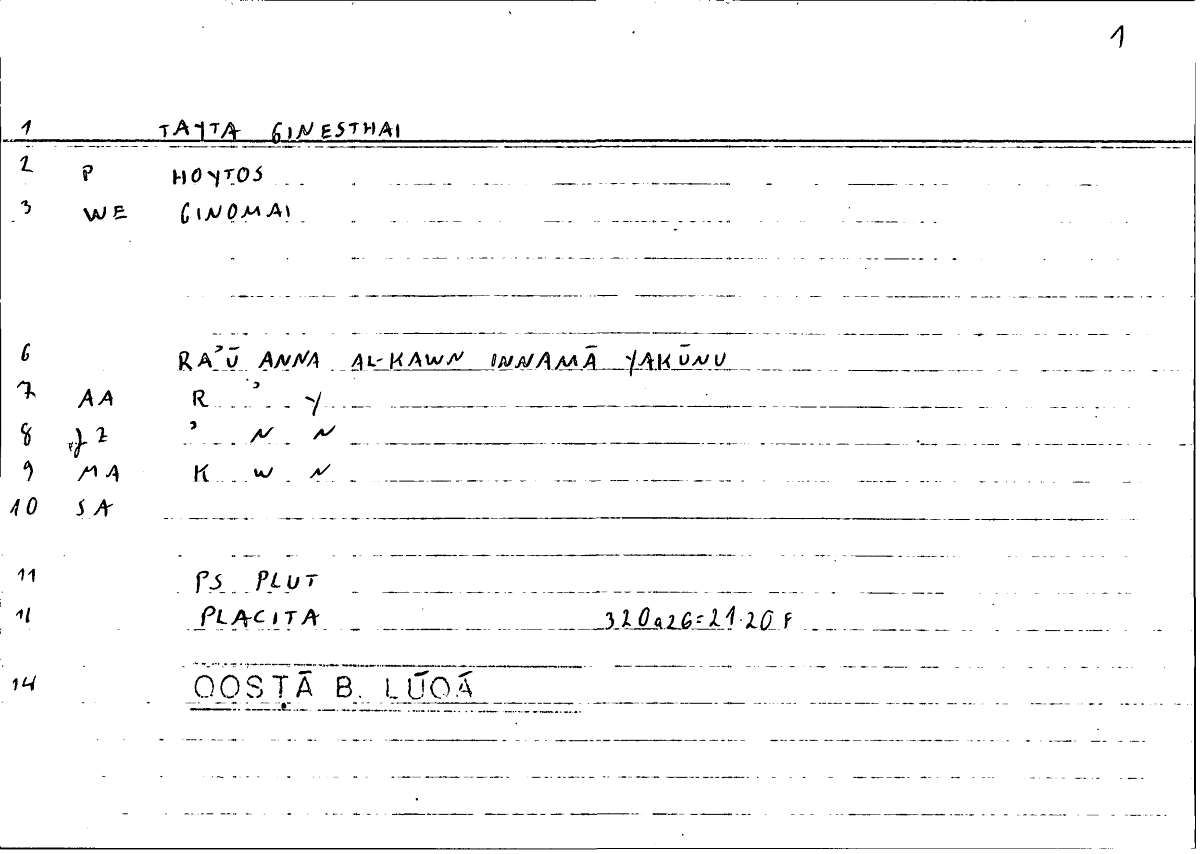 1
1 TAYTA GINESTHAI
2 P HOYTOS
3 WE GINOMAI
6 RAʾŪ ANNA AL-KAWN INNAMĀ YAKŪNU
7 AA R ʾ Y
8 ʾ N N
9 MA K W N
10 SA
11 PS PLUT
PLACITA 320a26=21.20 F
14 QOSṬĀ B. LŪQĀ